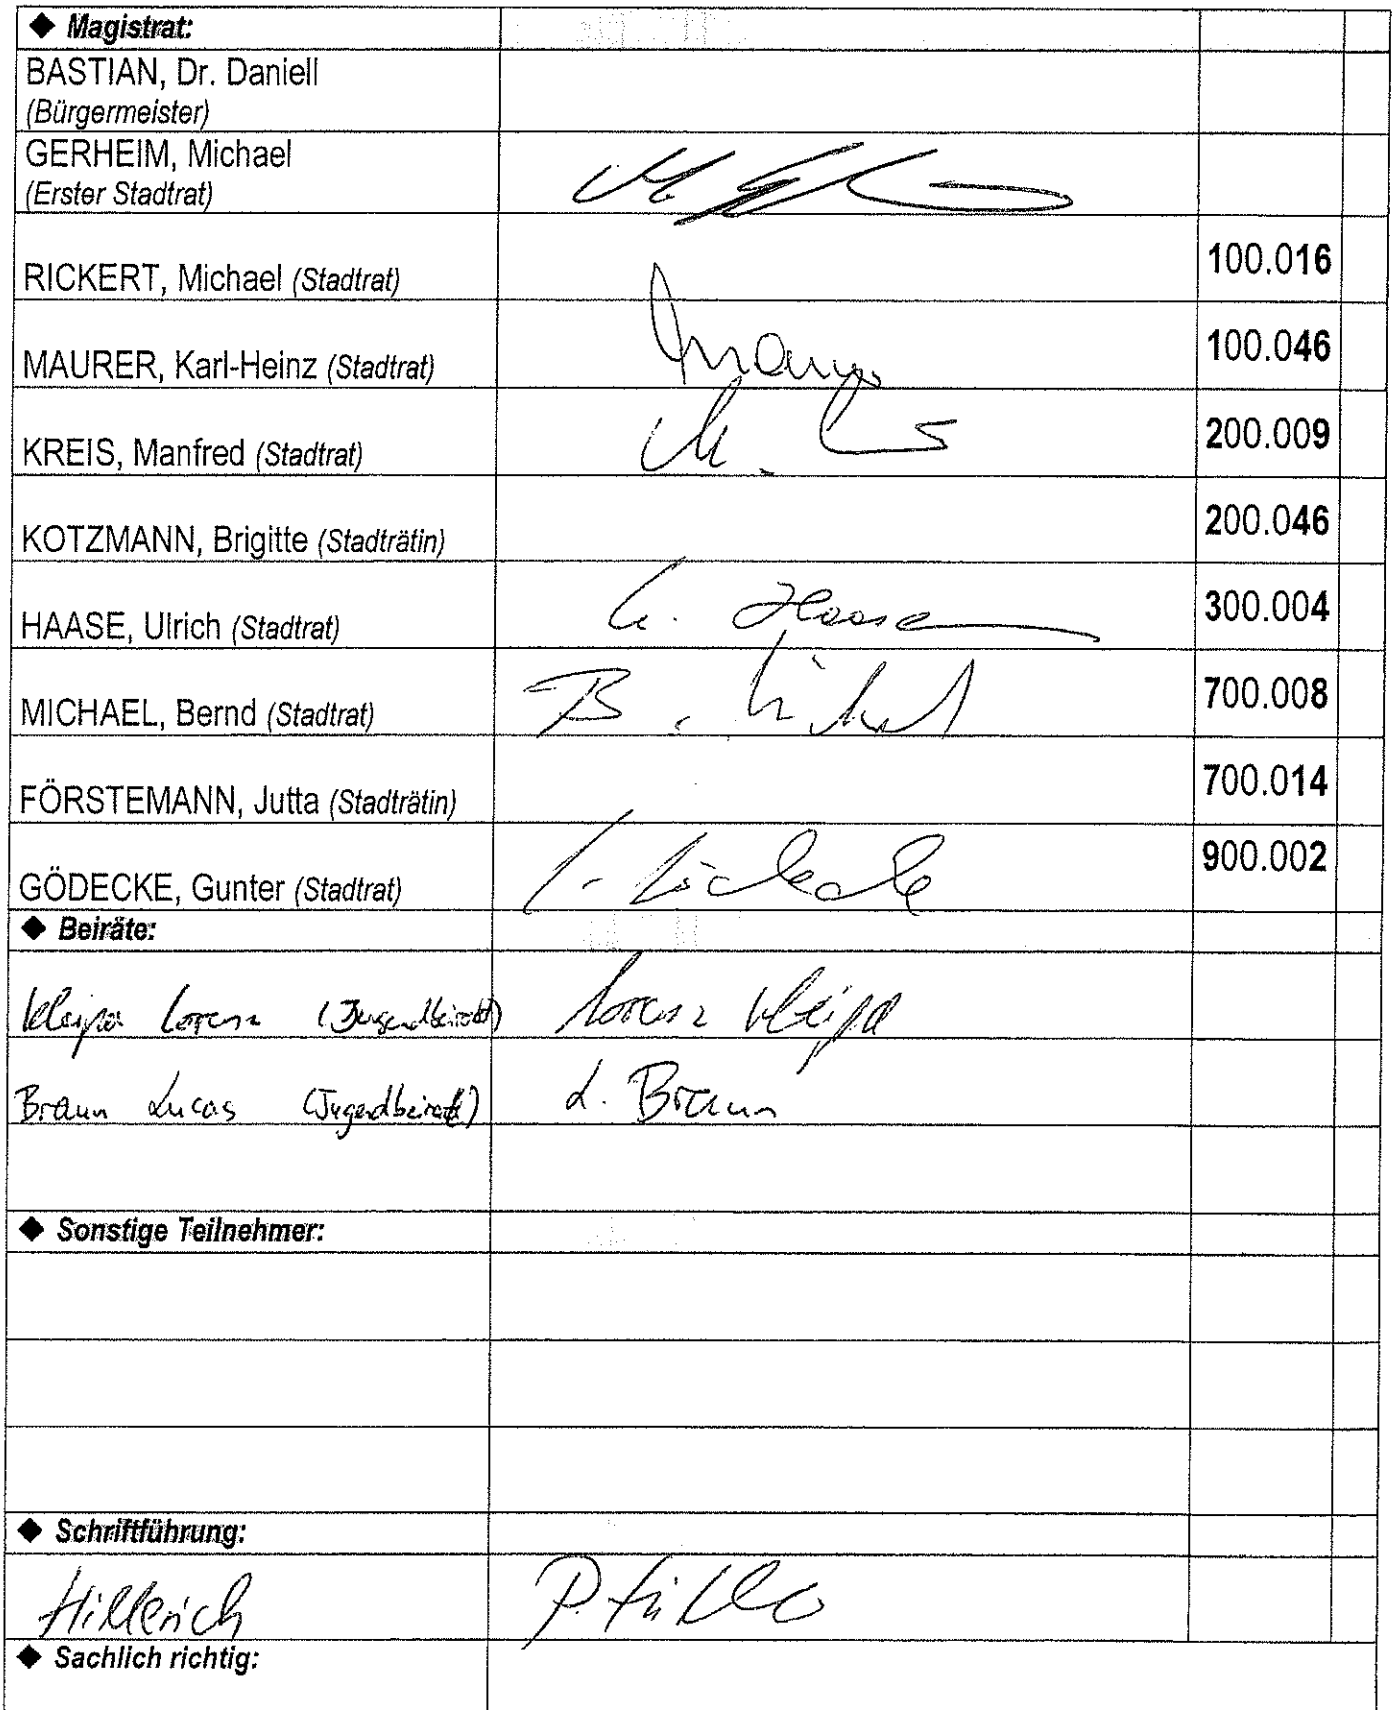 ◆ Magistrat:
BASTIAN, Dr. Daniell
(Bürgermeister)
GERHEIM, Michael
(Erster Stadtrat)
RICKERT, Michael (Stadtrat) 100.016
MAURER, Karl-Heinz (Stadtrat) 100.046
KREIS, Manfred (Stadtrat) 200.009
KOTZMANN, Brigitte (Stadträtin) 200.046
HAASE, Ulrich (Stadtrat) U. Haase 300.004
MICHAEL, Bernd (Stadtrat) B. Michael 700.008
FÖRSTEMANN, Jutta (Stadträtin) 700.014
GÖDECKE, Gunter (Stadtrat) G. Gödecke 900.002
◆ Beiräte:
Kleipa Lorenz (Jugendbeirat) Lorenz Kleipa
Braun Lucas (Jugendbeirat) L. Braun
◆ Sonstige Teilnehmer:
◆ Schriftführung:
Hillerich
◆ Sachlich richtig: